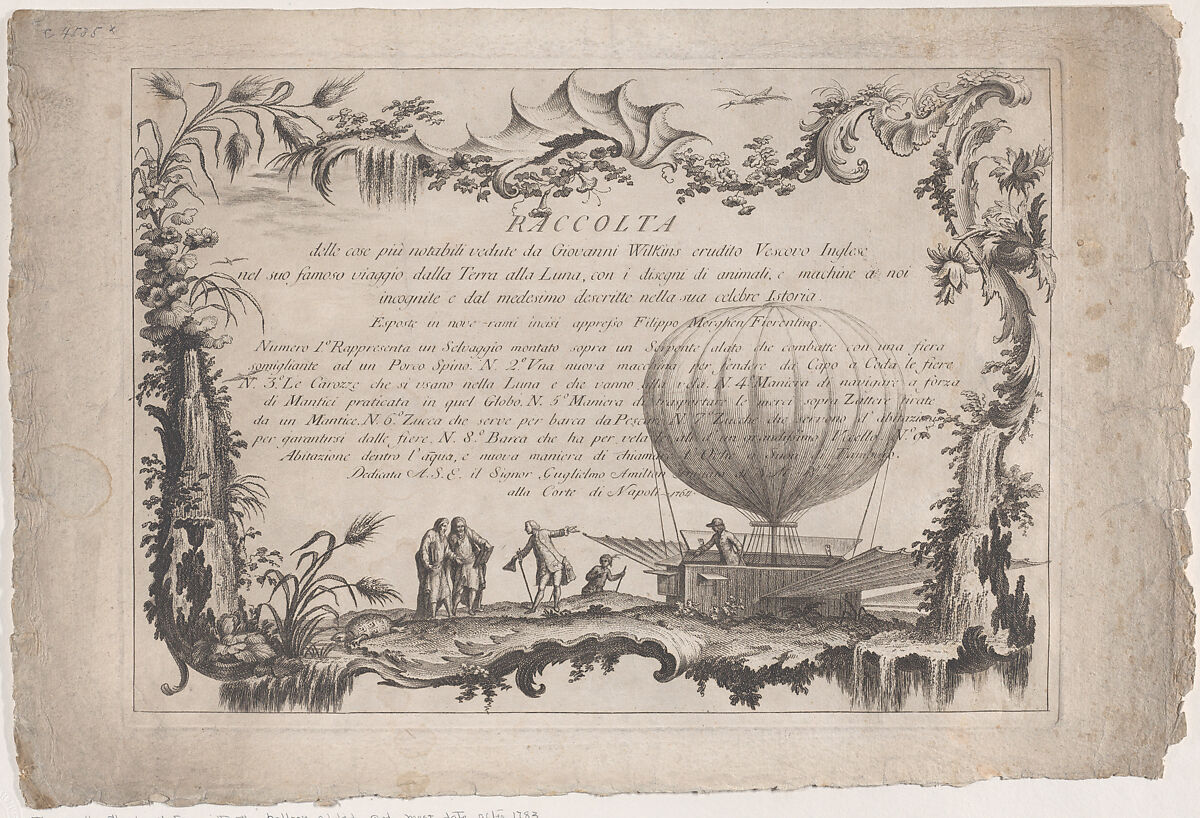 C 4535 x
RACCOLTA
delle cose più notabili vedute da Giovanni Wilkins erudito Vescovo Inglese
nel suo famoso viaggio dalla Terra alla Luna, con i disegni di animali, e machine à noi
incognite e dal medesimo descritte nella sua celebre Istoria.
Esposte in nove rami incisi appresso Filippo Morghen Fiorentino.
Numero 1.º Rappresenta un Selvaggio montato sopra un Serpente alato che combatte con una fiera
somigliante ad un Porco Spino. N. 2.º Vna nuova macchina per fendere da Capo a Coda le fiere
N. 3.º Le Carozze che si usano nella Luna e che vanno alla vela. N. 4.º Maniera di navigare a forza
di Mantici praticata in quel Globo. N. 5.º Maniera di trasportare le merci sopra Zattere tirate
da un Mantice. N. 6.º Zucca che serve per barca da N. 7.º Zucche che servono d'
per garantirsi dalle fiere. N. 8.º Barca che ha per vela Vcello. N. 9.º
Abitazione dentro l'aqua, e nuova maniera di
Dedicata A. S. E. il Signor Guglielmo Amilton
alla Corte di Napoli
balloon added 1783